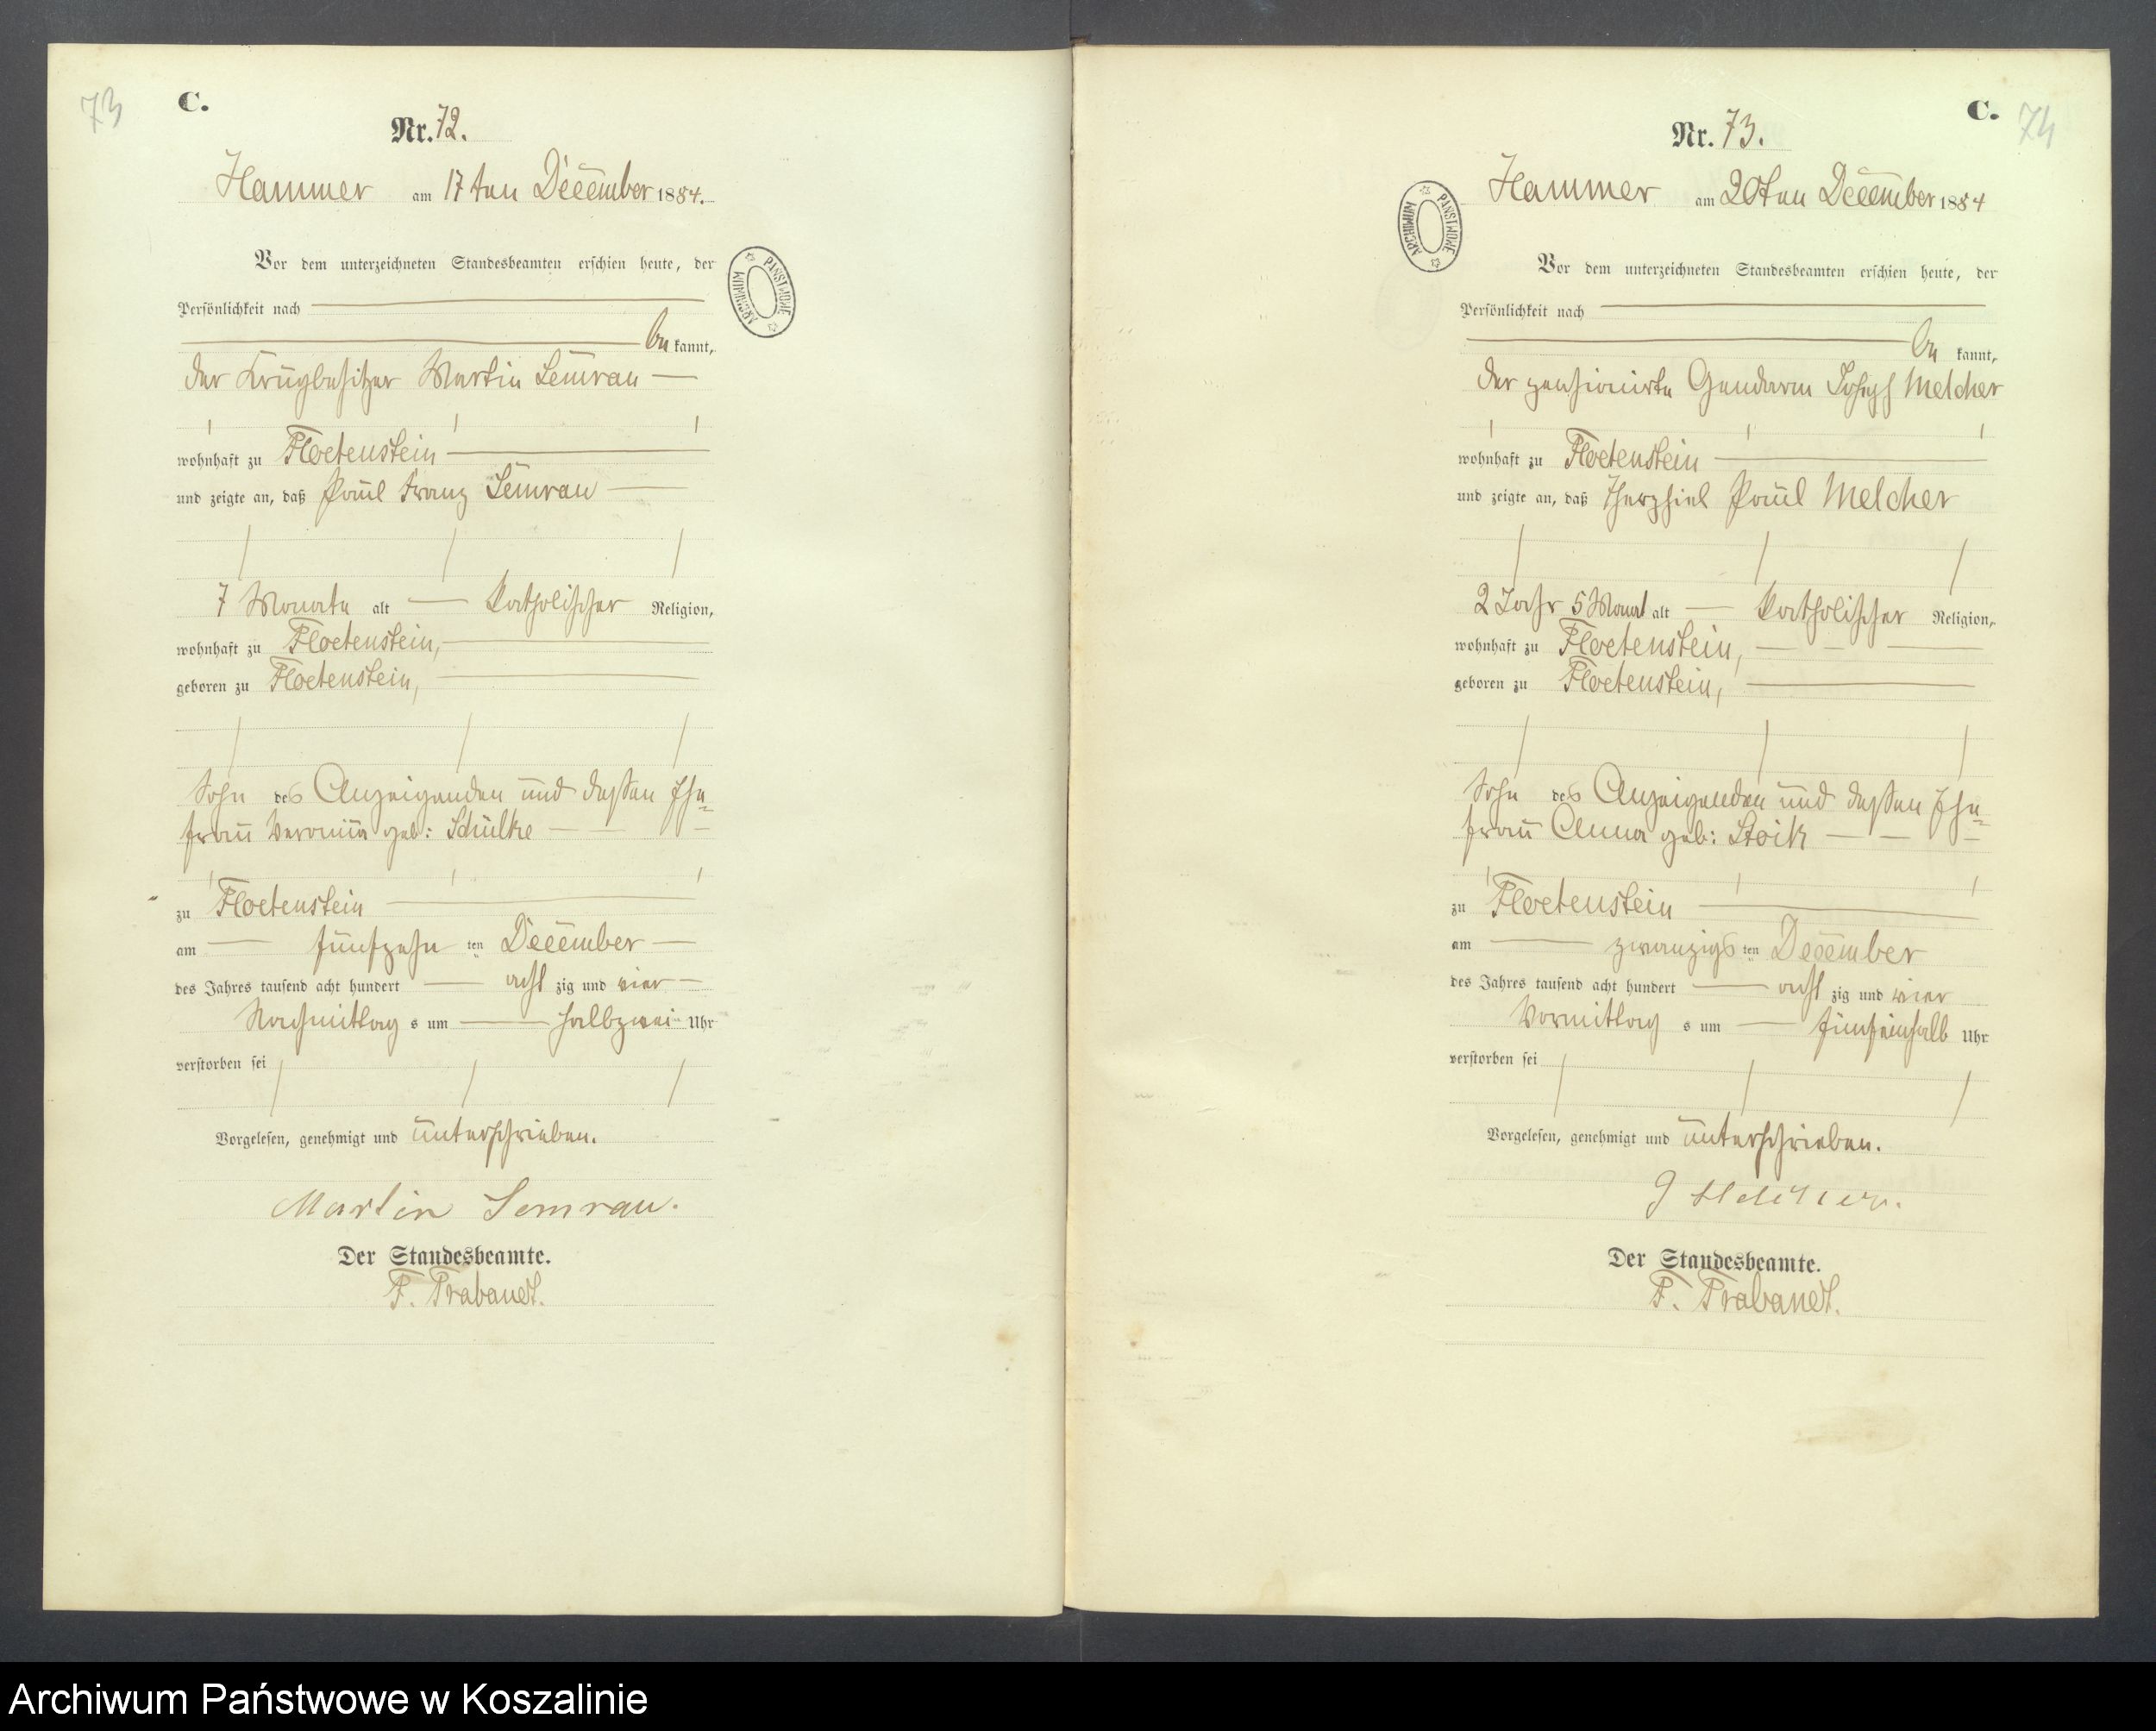 73
C.
Nr. 72.
Hammer am 17ten December 1884.
Vor dem unterzeichneten Standesbeamten erschien heute, der
Persönlichkeit nach
be kannt,
der Krugbesitzer Martin Semrau
wohnhaft zu Floetenstein
und zeigte an, daß Paul Franz Semrau
7 Monate alt katholischer Religion,
wohnhaft zu Floetenstein,
geboren zu Floetenstein,
Sohn des Anzeigenden und dessen Ehe-
frau Veronia geb: Schülke
zu Floetenstein
am fünfzehn ten December
des Jahres tausend acht hundert acht zig und vier
Nachmittag s um halbzwei Uhr
verstorben sei
Vorgelesen, genehmigt und unterschrieben.
Martin Semrau.
Der Standesbeamte.
F. Prabandt.
ARCHIWUM PAŃSTWOWE
C.
74
Nr. 73.
Hammer am 20ten December 1884
ARCHIWUM PAŃSTWOWE
Vor dem unterzeichneten Standesbeamten erschien heute, der
Persönlichkeit nach
be kannt,
der pensionirte Gendarm Joseph Melcher
wohnhaft zu Floetenstein
und zeigte an, daß Paul Melcher
2 Jahr 5 Monat alt katholischer Religion,
wohnhaft zu Floetenstein,
geboren zu Floetenstein,
Sohn des Anzeigenden und dessen Ehe-
frau Anna geb: Stoik
zu Floetenstein
am zwanzigs ten December
des Jahres tausend acht hundert acht zig und vier
Vormittag s um fünfeinhalb Uhr
verstorben sei
Vorgelesen, genehmigt und unterschrieben.
J Melcher.
Der Standesbeamte.
F. Prabandt.
Archiwum Państwowe w Koszalinie